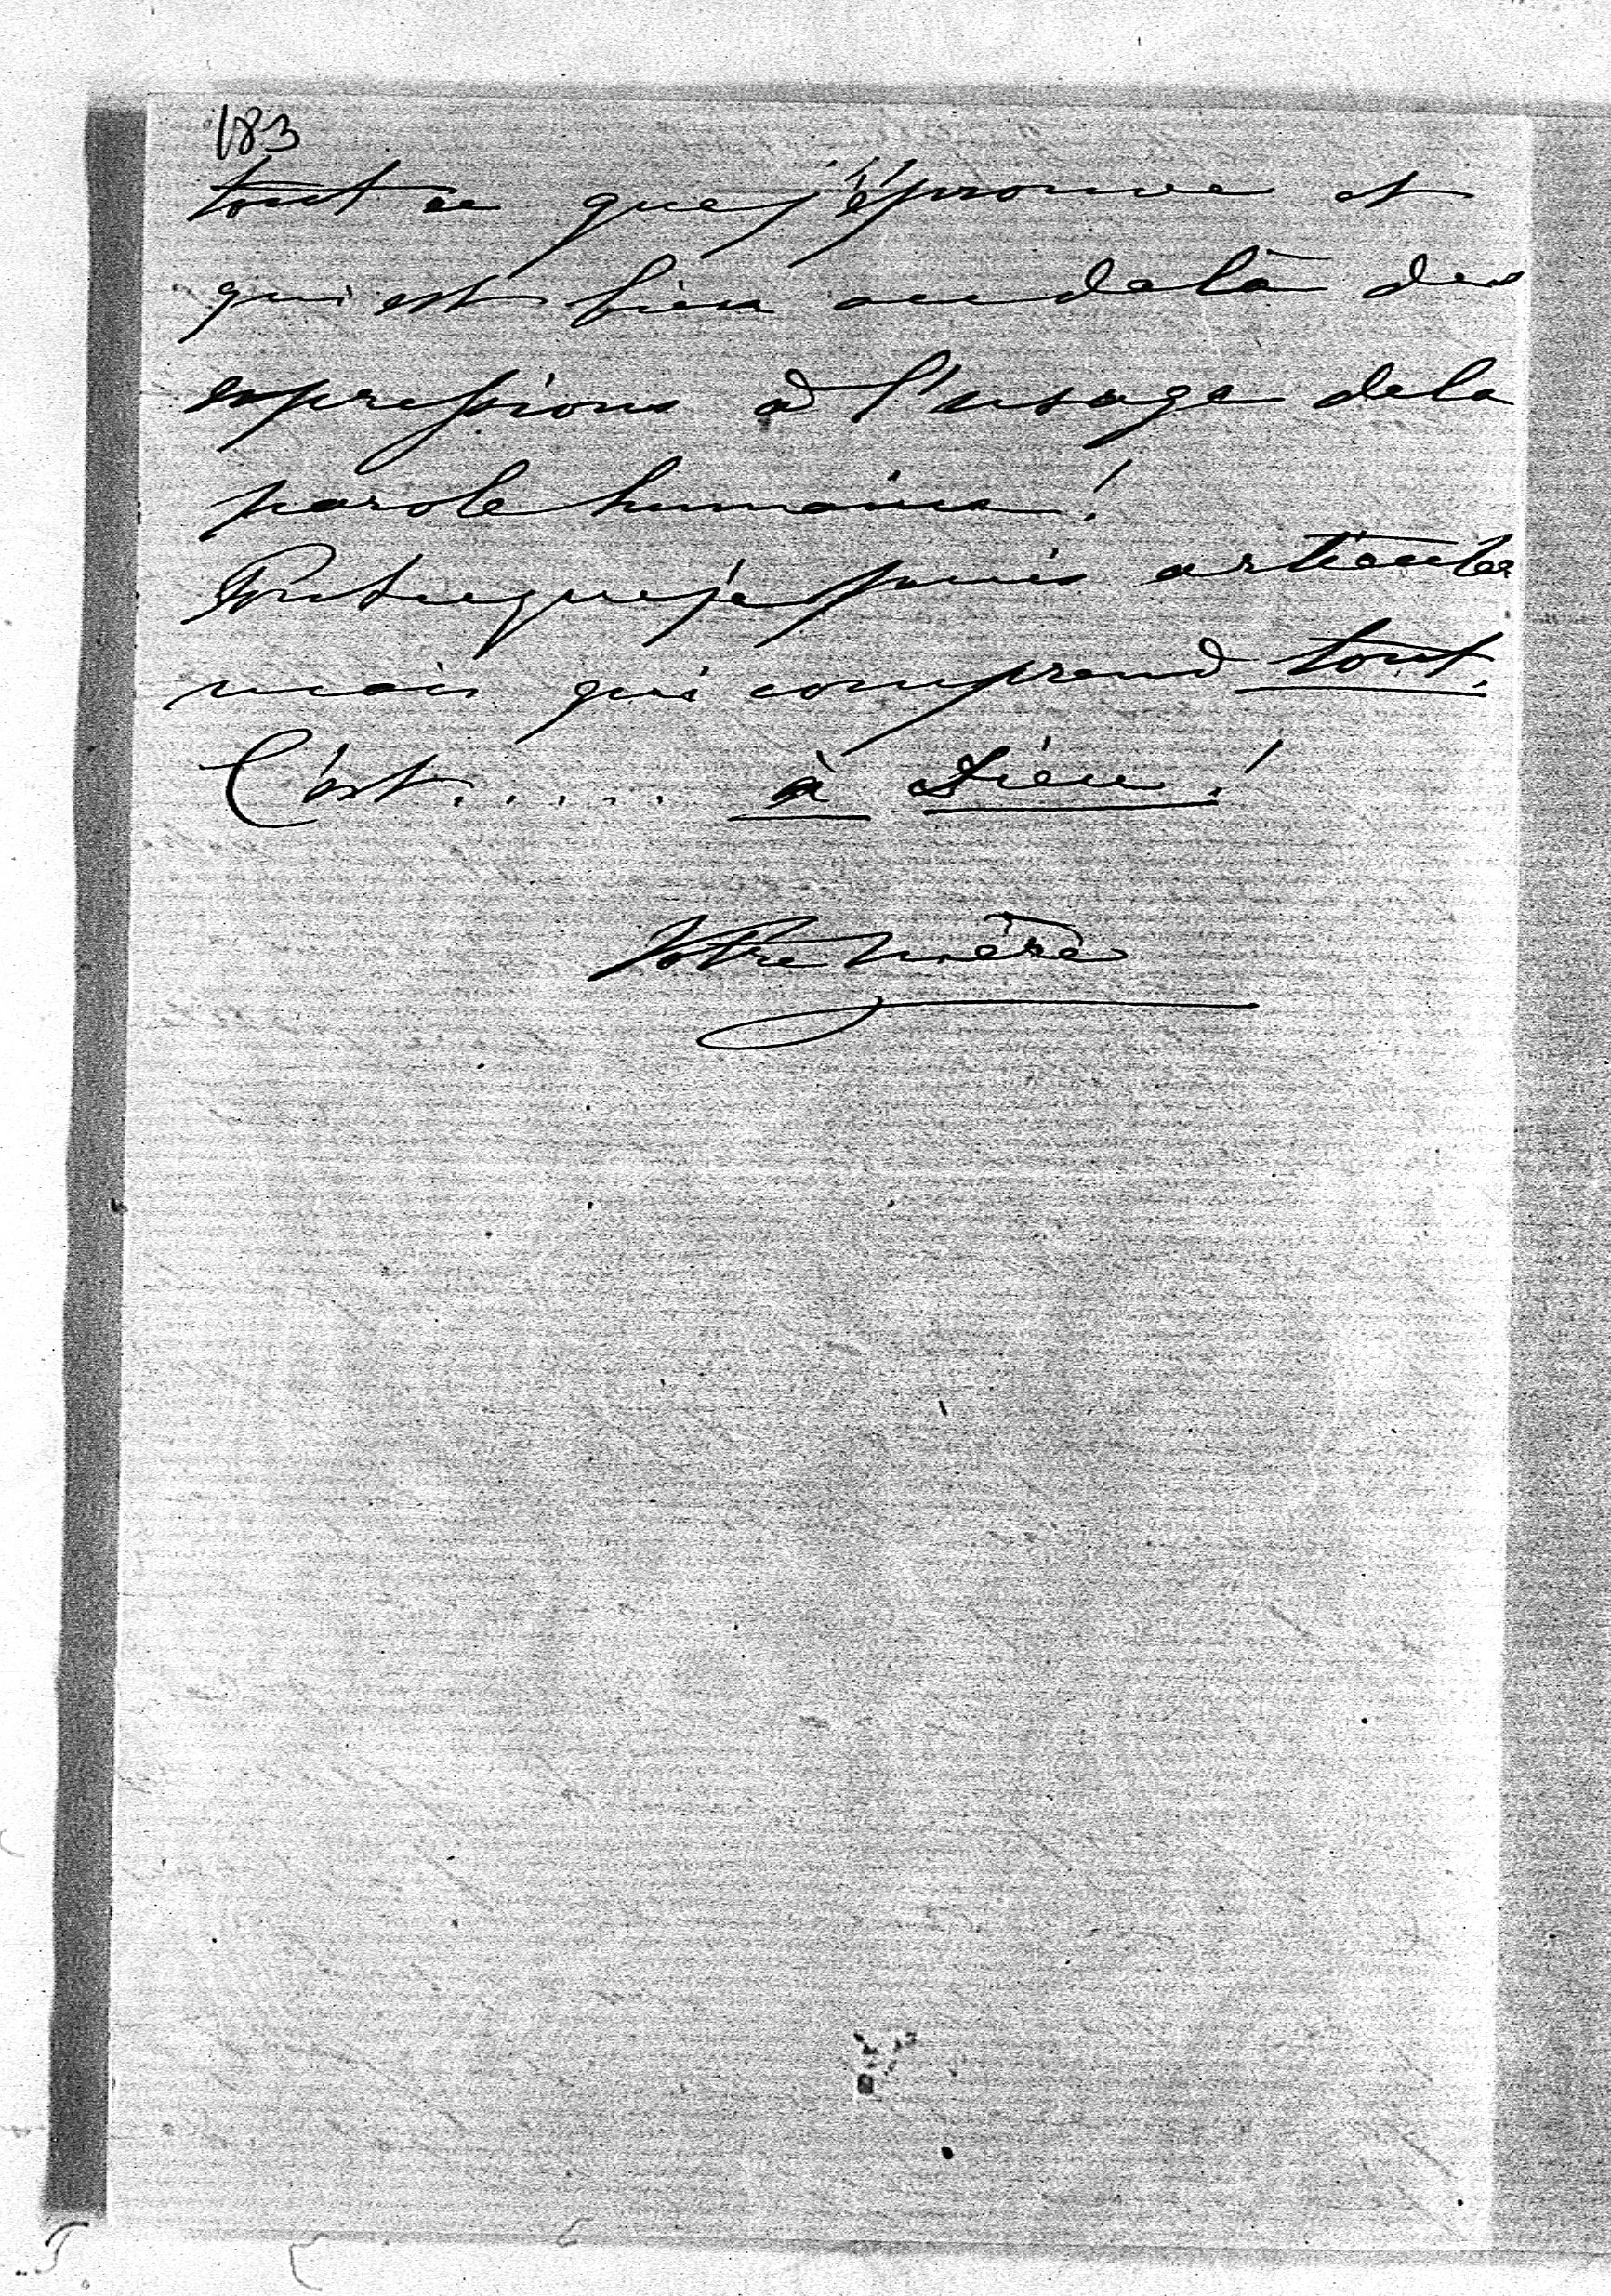 183
tout ce que j'éprouve et
qui est bien au delà des
expressions à l'usage de la
parole humaine!
que je puis articuler
mais qui comprend tout.
C'est..... à Dieu!
Votre mère